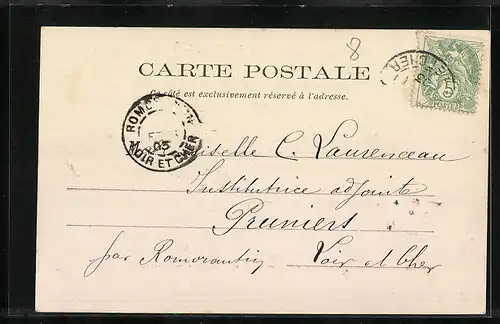 8
CARTE POSTALE
Ce côté est exclusivement réservé à l'adresse.
ROMORANTIN
03
LOIR ET CHER
5
Mademoiselle C. Laurenceau
Institutrice adjointe
Pruniers
par Romorantin Loir et Cher